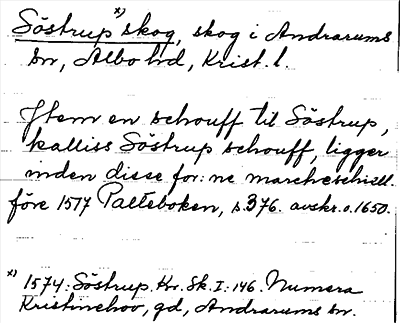 Söstrup x) skog, skog i Andrarums
sn, Albo hd, Krist. l.
Jtem en schouff til Söstrup,
kalliss Söstrup schouff, ligger
inden disse for:ne marcheschiell.
före 1517 Palteboken, s. 376. avskr. o. 1650.
x) 1574: Söstrup. Kr. Sk. I: 146. Numera
Kristinehov, gd, Andrarums sn.